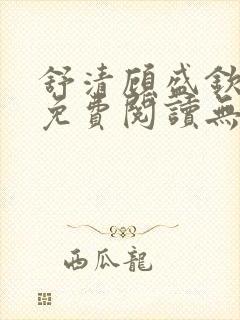 舒清顾盛欽
免費閱讀無
西瓜龍